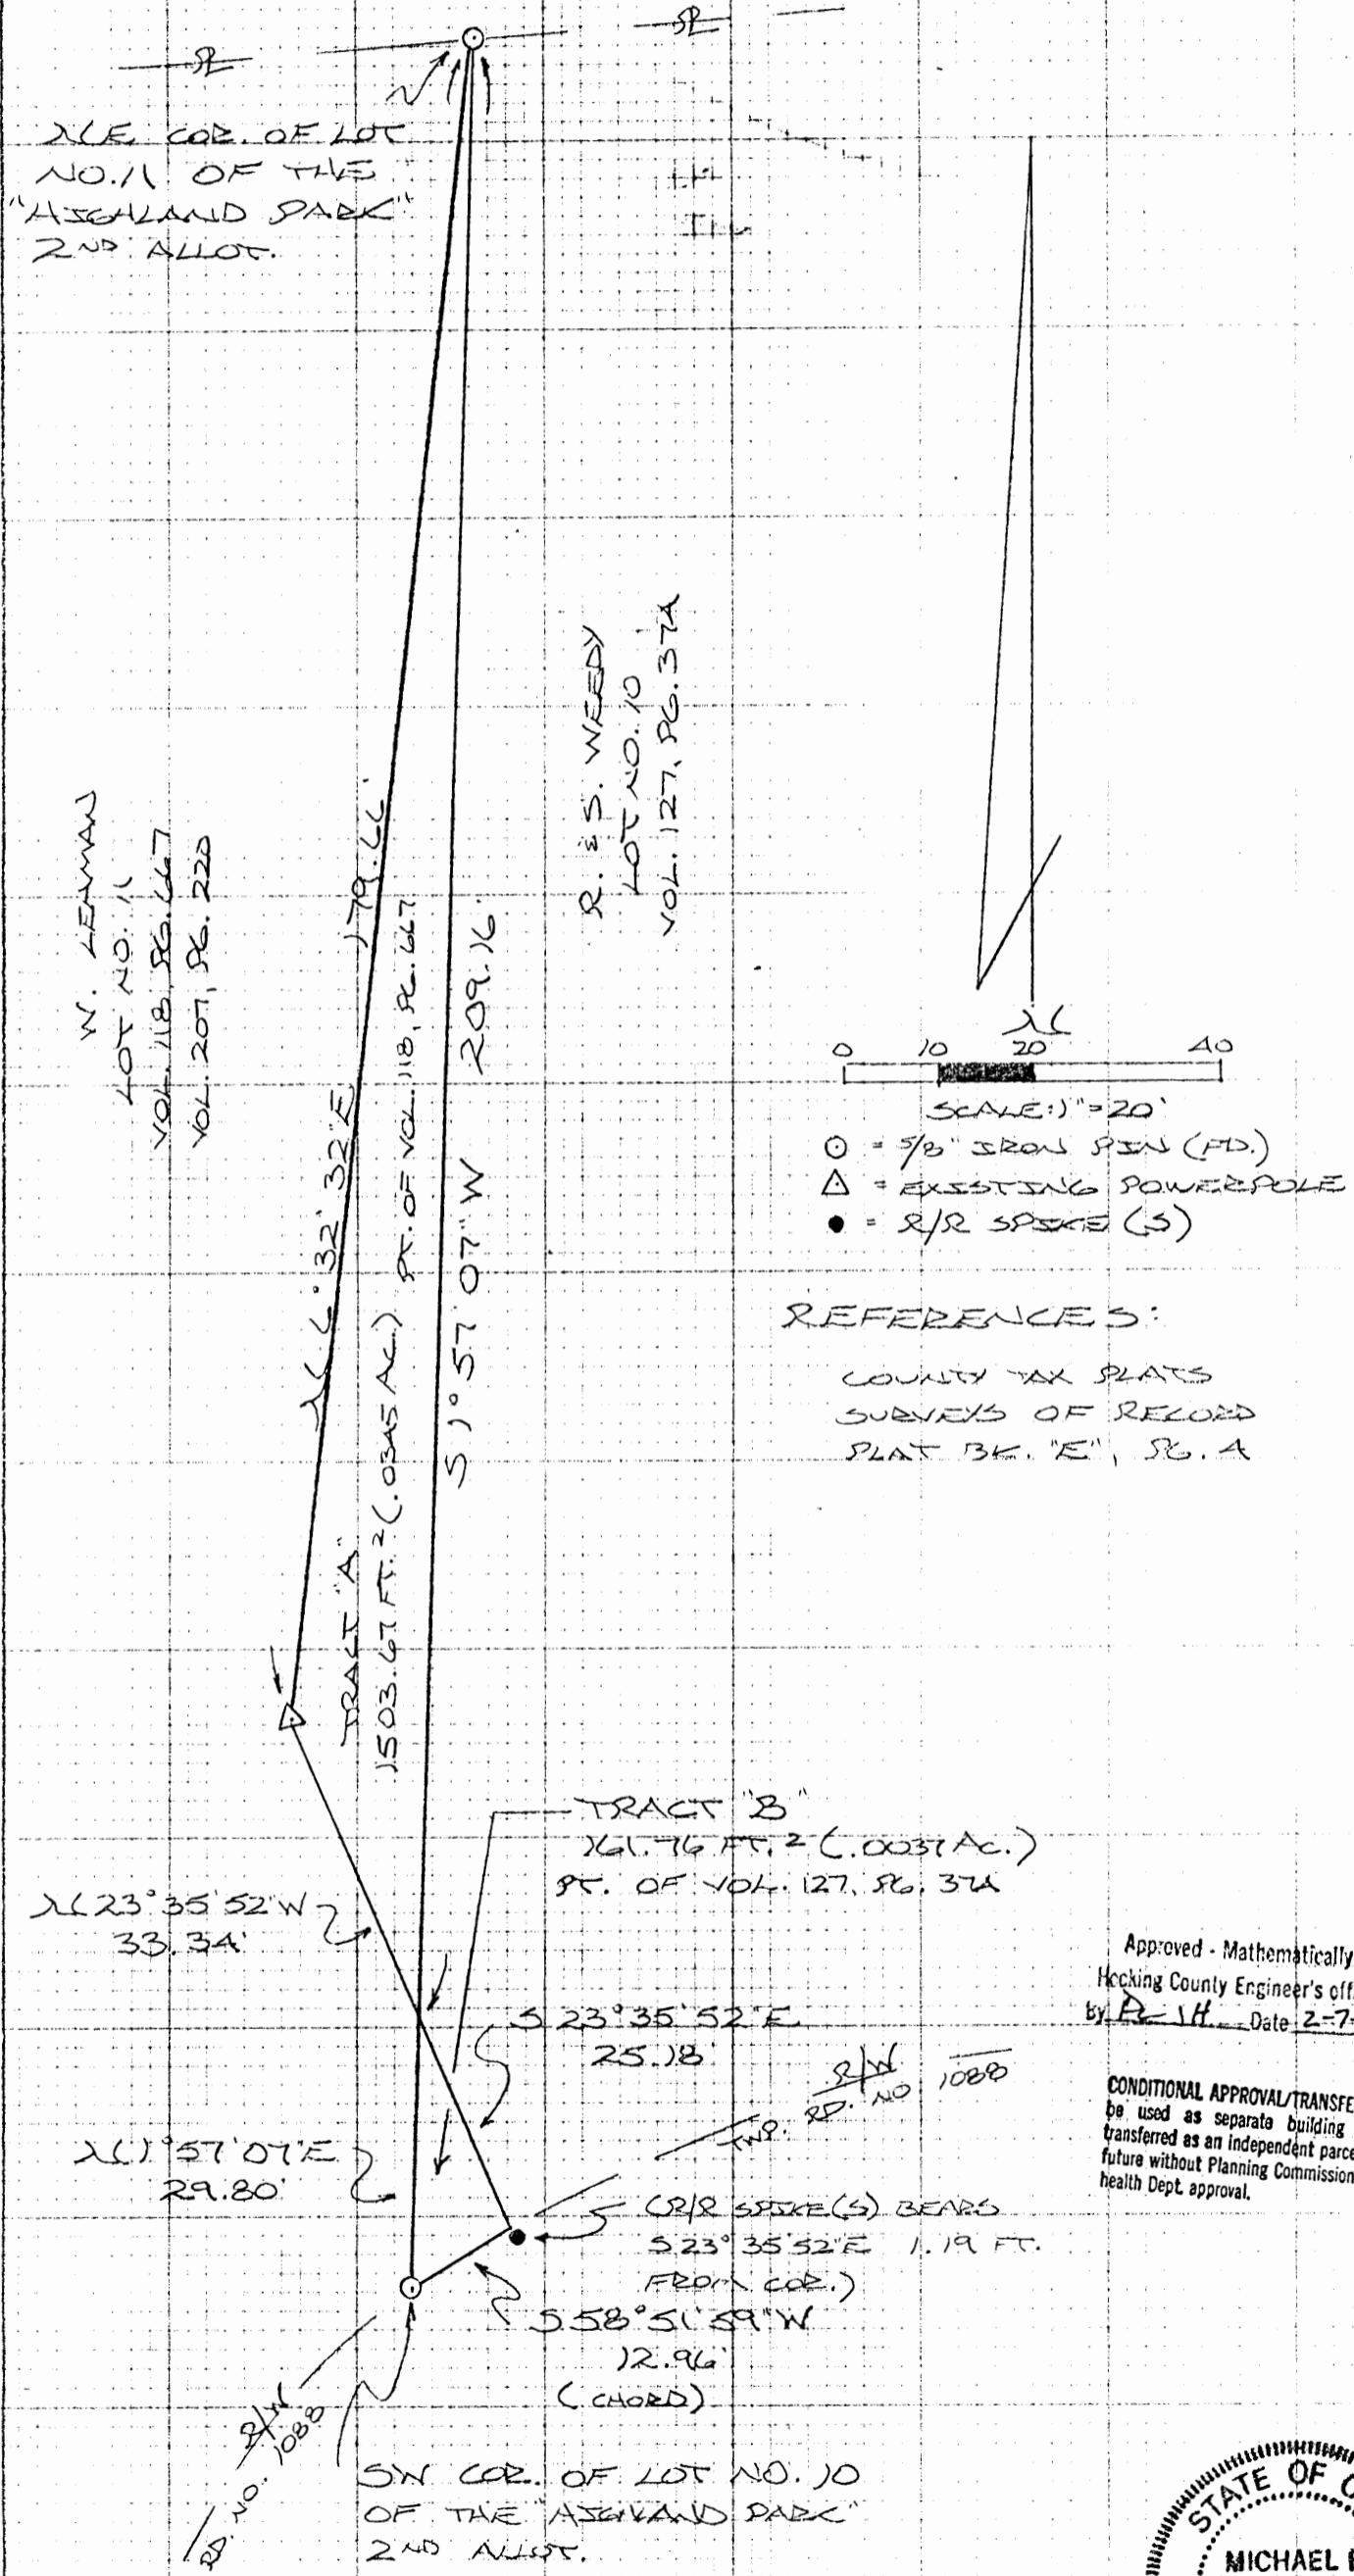 PL
PL
NE COR. OF LOT
NO. 11 OF THE
"HIGHLAND PARK"
2ND ALLOT.
W. LEHMAN
LOT NO. 11
VOL. 118, PG. 667
VOL. 207, PG. 220
N 6° 32' 32" E 179.66'
TRACT "A"
1503.67 FT.² (.0345 AC.) PT. OF VOL. 118, PG. 667
S 1° 57' 07" W 209.16'
R. & S. WEEDY
LOT NO. 10
VOL. 127, PG. 374
N
0 10 20 40
SCALE: 1" = 20'
= 5/8" IRON PIN (FD.)
= EXISTING POWERPOLE
= R/R SPIKE (S)
REFERENCES:
COUNTY TAX PLATS
SURVEYS OF RECORD
PLAT BK. "E", PG. 4
TRACT "B"
161.76 FT.² (.0037 AC.)
PT. OF VOL. 127, PG. 374
N 23° 35' 52" W
33.34'
S 23° 35' 52" E
25.18'
R/W
TWP. RD. NO 1088
N 1° 57' 07" E
29.80'
(R/R SPIKE (S) BEARS
S 23° 35' 52" E 1.19 FT.
FROM COR.)
S 58° 51' 59" W
12.96'
(CHORD)
R/W
RD. NO. 1088
SW COR. OF LOT NO. 10
OF THE "HIGHLAND PARK"
2ND ALLOT.
Approved - Mathematically
Hocking County Engineer's off
By Date 2-7-
CONDITIONAL APPROVAL/TRANSFE
be used as separate building
transferred as an independent parce
future without Planning Commission
health Dept. approval.
STATE OF O
MICHAEL